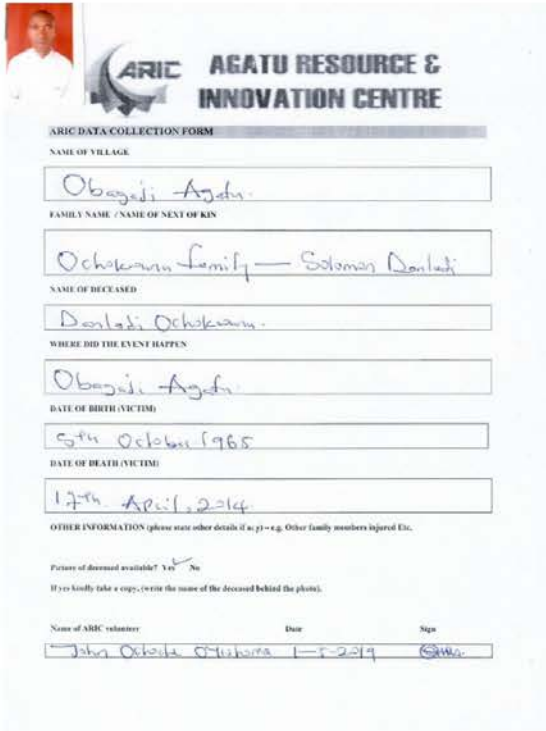 ARIC
AGATU RESOURCE &
INNOVATION CENTRE
ARIC DATA COLLECTION FORM
NAME OF VILLAGE
Obagaji Agatu.
FAMILY NAME / NAME OF NEXT OF KIN
family — Solomon Danladi
NAME OF DECEASED
Danladi
WHERE DID THE EVENT HAPPEN
Obagaji Agatu.
DATE OF BIRTH (VICTIM)
5th October 1965
DATE OF DEATH (VICTIM)
April, 2014.
OTHER INFORMATION (please state other details if any) – e.g. Other family members injured Etc.
Picture of deceased available? Yes No
If yes kindly take a copy, (write the name of the deceased behind the photo).
Name of ARIC volunteer Date Sign
John 1-5-2019